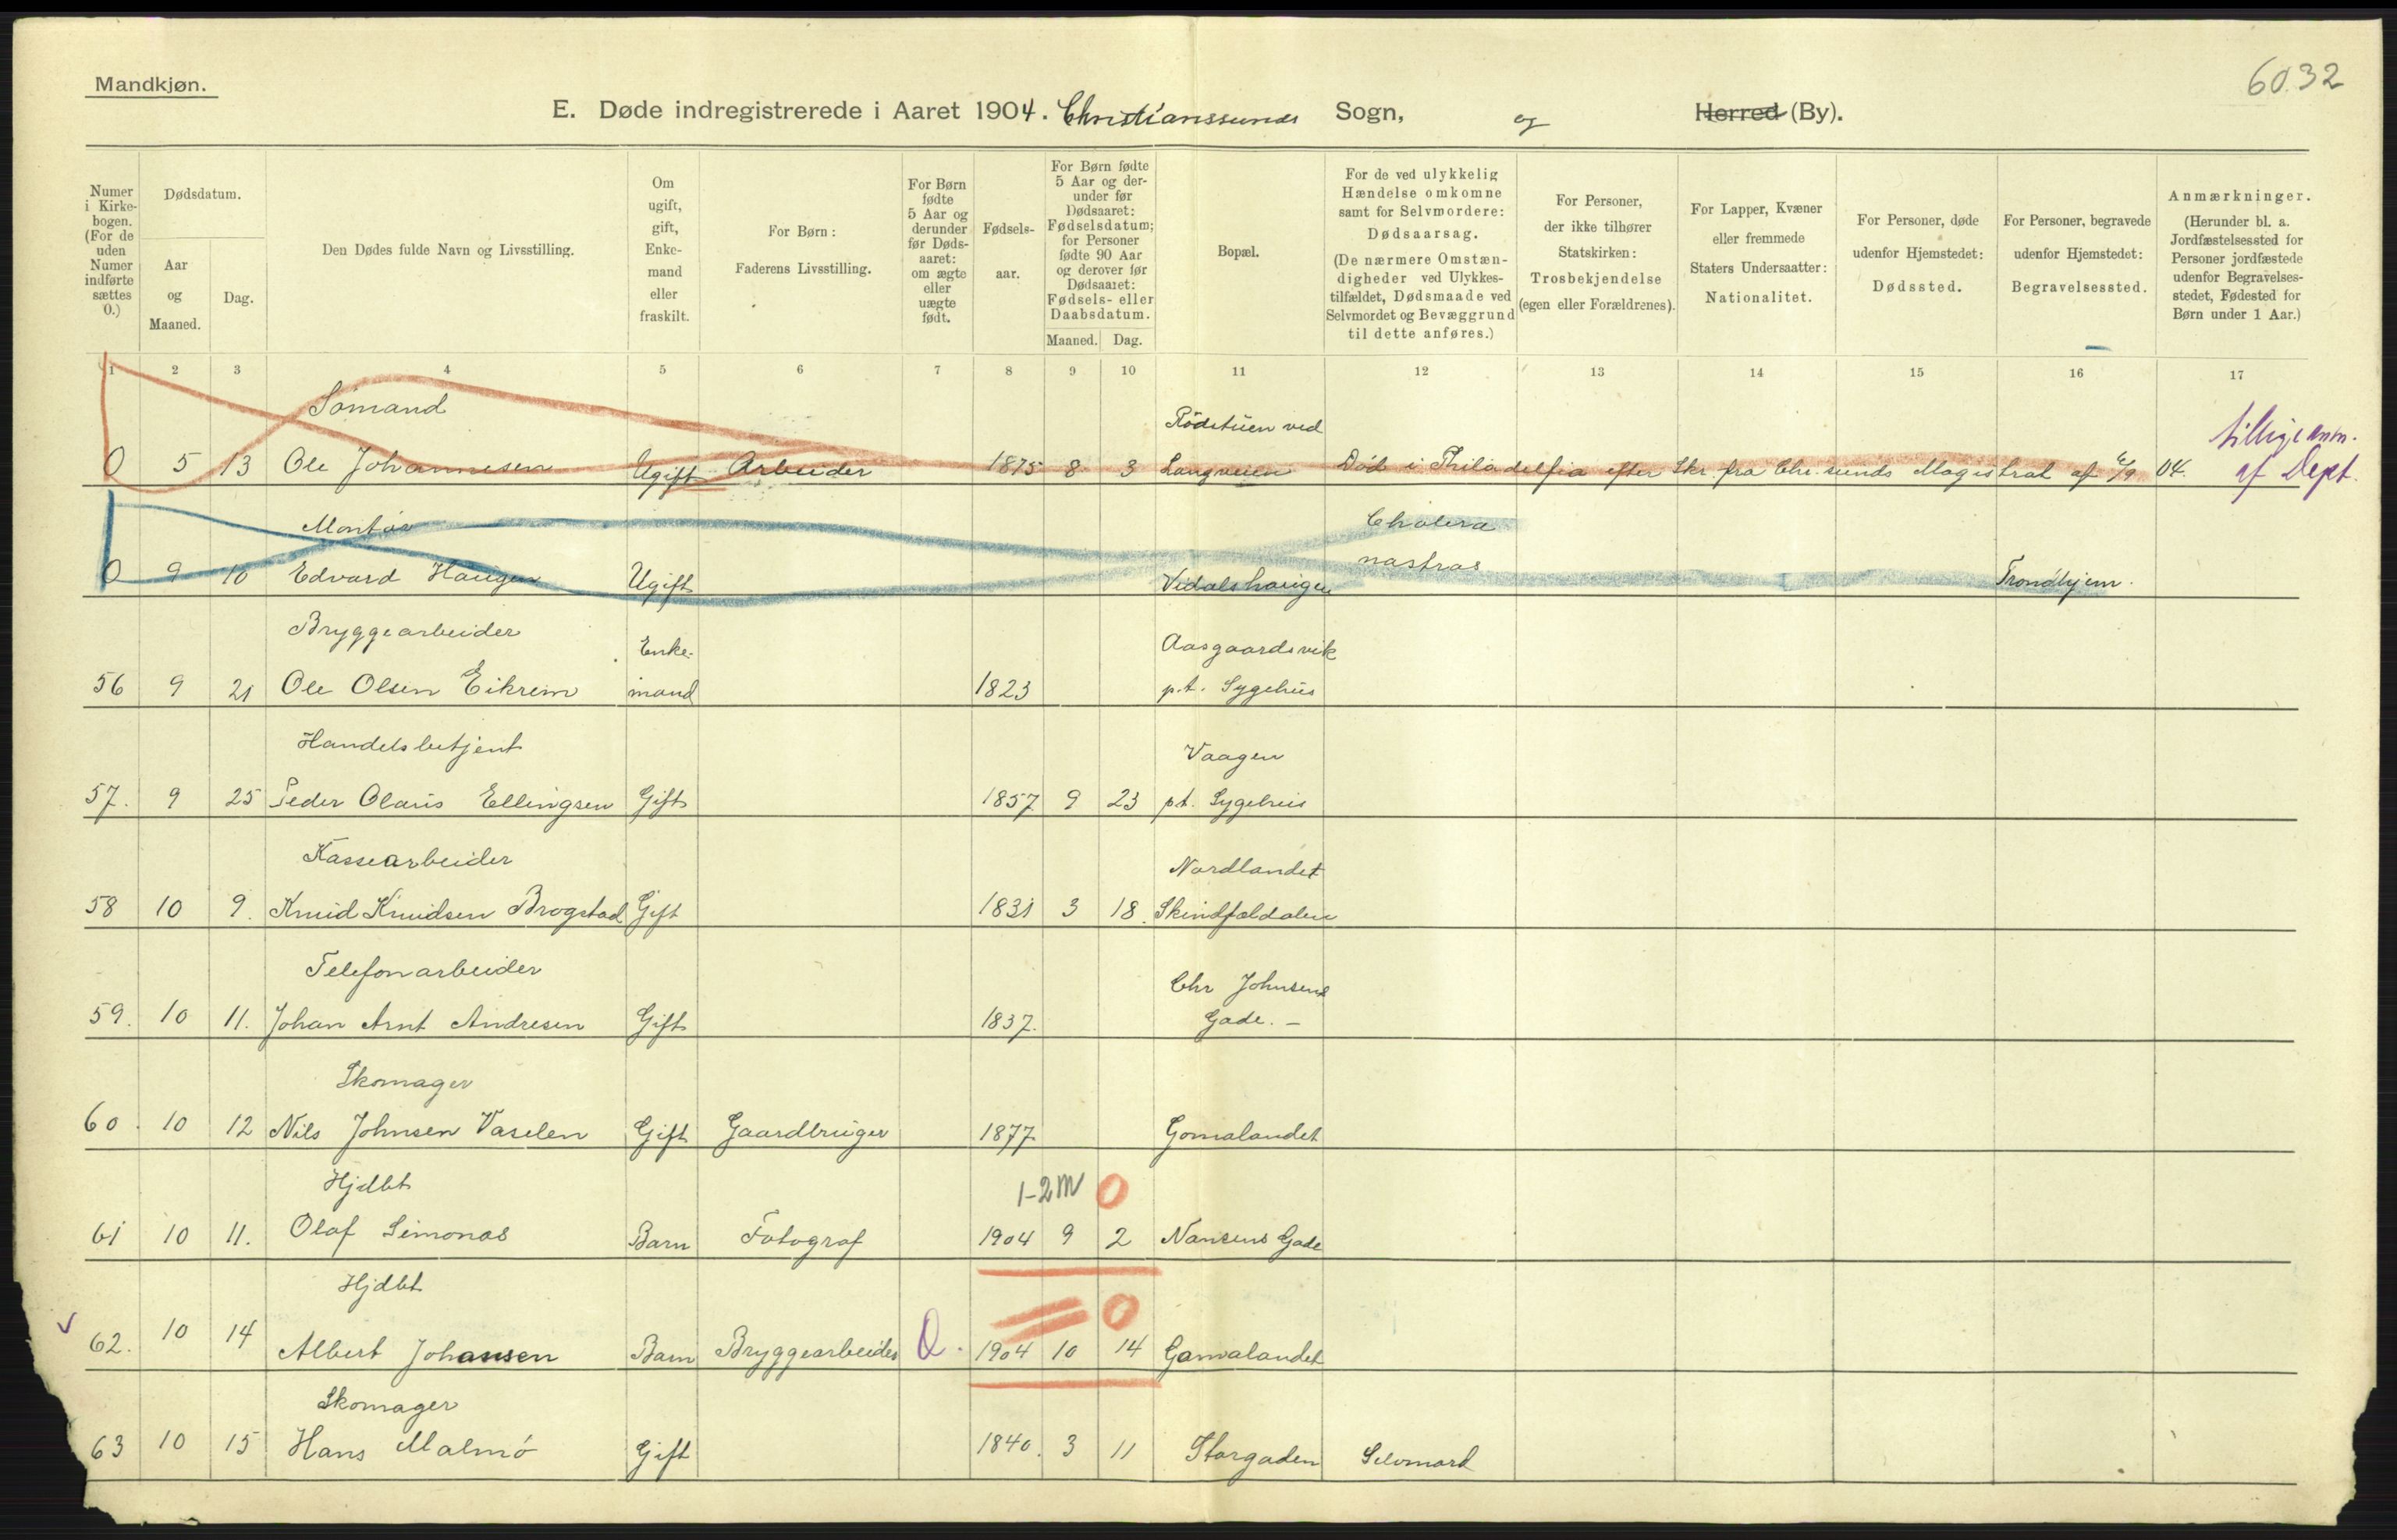 6032
Mandkjøn.
E. Døde indregistrerede i Aaret 1904. Christianssunds Sogn, og Herred (By).
Numer i Kirkebogen. (For de uden Numer indførte sættes 0.)
Dødsdatum.
Aar og Maaned.
Dag.
Den Dødes fulde Navn og Livsstilling.
Om ugift, gift, Enkemand eller fraskilt.
For Børn: Faderens Livsstilling.
For Børn fødte 5 Aar og derunder før Dødsaaret: om ægte eller uægte født.
Fødselsaar.
For Børn fødte 5 Aar og derunder før Dødsaaret: Fødselsdatum; for Personer fødte 90 Aar og derover før Dødsaaret: Fødsels- eller Daabsdatum.
Maaned. Dag.
Bopæl.
For de ved ulykkelig Hændelse omkomne samt for Selvmordere: Dødsaarsag. (De nærmere Omstændigheder ved Ulykkestilfældet, Dødsmaade ved Selvmordet og Bevæggrund til dette anføres.)
For Personer, der ikke tilhører Statskirken: Trosbekjendelse (egen eller Forældrenes).
For Lapper, Kvæner eller fremmede Staters Undersaatter: Nationalitet.
For Personer, døde udenfor Hjemstedet: Dødssted.
For Personer, begravede udenfor Hjemstedet: Begravelsessted.
Anmærkninger. (Herunder bl. a. Jordfæstelsessted for Personer jordfæstede udenfor Begravelsesstedet, Fødested for Børn under 1 Aar.)
1 2 3 4 5 6 7 8 9 10 11 12 13 14 15 16 17
Sømand Rödstuen ved tillige anm.
0 5 13 Ole Johannesen Ugift Arbeider 1875 8 3 Langveien Död i Philadelfia efter Skr. fra Chr.sunds Magistrat af 6/9 04. af Dept.
Montør Cholera
0 9 10 Edvard Haugen Ugift Vidalshaugen nastras Trondhjem.
Bryggearbeider Enke- Aasgaardsvik
56 9 21 Ole Olsen Eikrem mand 1823 p.t. Sygehus
Handelsbetjent Vaagen
57. 9 25 Peder Olaus Ellingsen Gift 1857 9 23 pt. Sygehus
Kassearbeider Nordlandet
58 10 9. Knud Knudsen Brogstad Gift 1831 3 18. Skindfældalen
Telefonarbeider Chr Johnsens
59. 10 11. Johan Arnt Andresen Gift 1837. Gade. –
Skomager
60. 10 12 Nils Johnsen Vaselen Gift Gaardbruger 1877 Gomalandet
Hjdbt 1-2 M 0
61 10 11. Olaf Simonas Barn Fotograf 1904 9 2 Nansens Gade
Hjdbt 0
62. 10 14 Albert Johansen Barn Bryggearbeider 1904 10 14 Gomalandet
Skomager
63 10 15 Hans Malmö Gift 1840. 3 11 Storgaden Selvmord